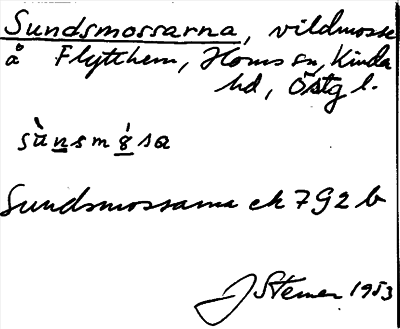 Sundsmossarna, vildmosse
å Flytthem, Horns sn, Kinda
hd, Östg l.
Sundsmossarna ek 7 G 2 b
J Stemer 1953